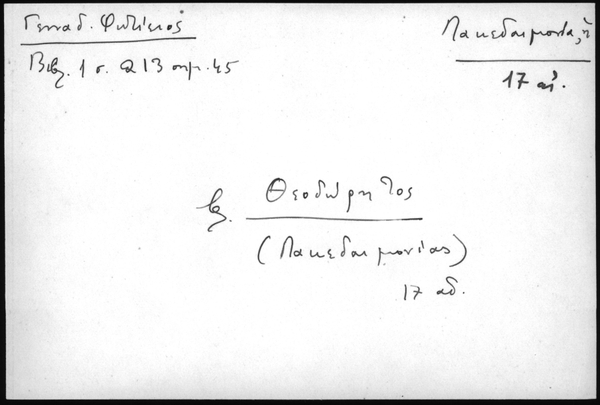 Γενναδ. Φωτίειος
Βιβλ. 1 σ. 213 σημ. 45
Λακεδαιμονία, ἡ
17 αἰ.
βλ. Θεοδώρητος
(Λακεδαιμονίας)
17 αἰ.